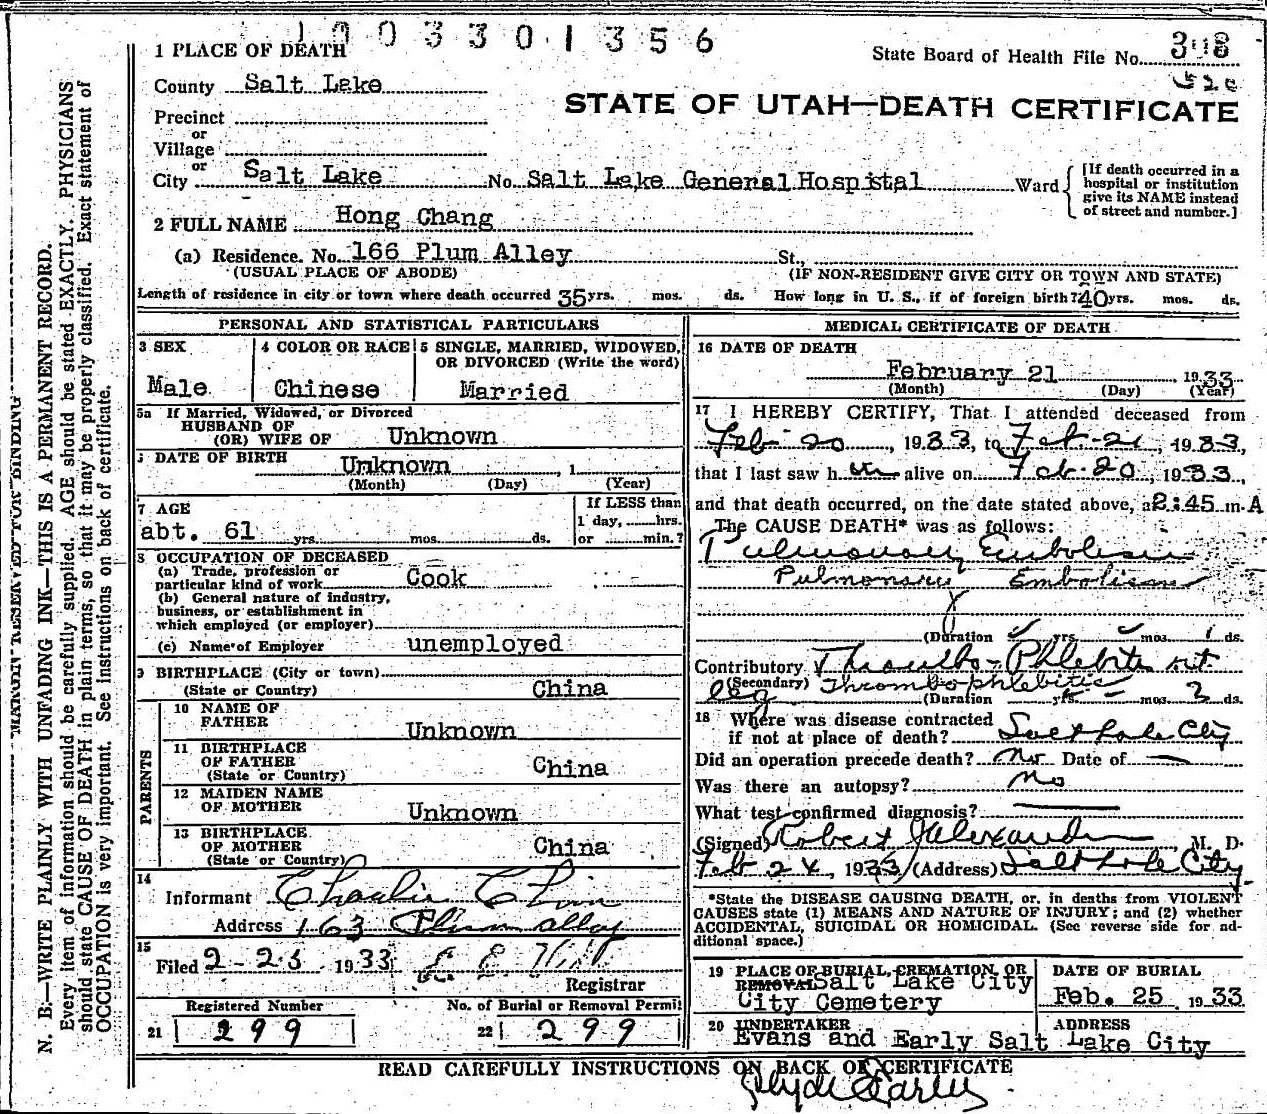 1003301356
State Board of Health File No. 398
520
STATE OF UTAH—DEATH CERTIFICATE
1 PLACE OF DEATH
County Salt Lake
Precinct
or
Village
or
City Salt Lake No. Salt Lake General Hospital Ward
[If death occurred in a hospital or institution give its NAME instead of street and number.]
2 FULL NAME Hong Chang
(a) Residence. No. 166 Plum Alley St.,
(USUAL PLACE OF ABODE) (IF NON-RESIDENT GIVE CITY OR TOWN AND STATE)
Length of residence in city or town where death occurred 35 yrs. mos. ds. How long in U. S., if of foreign birth? 40 yrs. mos. ds.
PERSONAL AND STATISTICAL PARTICULARS
3 SEX
Male
4 COLOR OR RACE
Chinese
5 SINGLE, MARRIED, WIDOWED,
OR DIVORCED (Write the word)
Married
5a If Married, Widowed, or Divorced
HUSBAND OF
(OR) WIFE OF Unknown
DATE OF BIRTH
Unknown , 1
(Month) (Day) (Year)
7 AGE
abt. 61 yrs. mos. ds.
If LESS than
1 day, hrs.
or min.?
8 OCCUPATION OF DECEASED
(a) Trade, profession or
particular kind of work Cook
(b) General nature of industry,
business, or establishment in
which employed (or employer)
(c) Name of Employer unemployed
9 BIRTHPLACE (City or town)
(State or Country) China
PARENTS
10 NAME OF
FATHER Unknown
11 BIRTHPLACE
OF FATHER
(State or Country) China
12 MAIDEN NAME
OF MOTHER Unknown
13 BIRTHPLACE
OF MOTHER
(State or Country) China
14
Informant Charlie Chin
Address 163 Plum alley
15
Filed 2-25 1933
Registrar
Registered Number
21 299
No. of Burial or Removal Permit
22 299
MEDICAL CERTIFICATE OF DEATH
16 DATE OF DEATH
February 21 , 1933
(Month) (Day) (Year)
17 I HEREBY CERTIFY, That I attended deceased from
Feb 20 , 1933, to Feb. 21, 1933,
that I last saw h im alive on Feb. 20, 1933,
and that death occurred, on the date stated above, a 2:45 m. A
The CAUSE DEATH* was as follows:
Pulmonary Embolism
Pulmonary Embolism
(Duration yrs. mos. 1 ds.
Contributory Thrombo-Phlebitis
(Secondary) leg Thrombophlebitis
(Duration yrs. mos. 3 ds.
18 Where was disease contracted
if not at place of death? Salt Lake City
Did an operation precede death? No Date of
Was there an autopsy? No
What test confirmed diagnosis?
(Signed) Robert Alexander, M. D.
Feb 24, 1933 (Address) Salt Lake City
*State the DISEASE CAUSING DEATH, or, in deaths from VIOLENT
CAUSES state (1) MEANS AND NATURE OF INJURY; and (2) whether
ACCIDENTAL, SUICIDAL OR HOMICIDAL. (See reverse side for ad-
ditional space.)
19 PLACE OF BURIAL, CREMATION, OR
REMOVAL Salt Lake City
City Cemetery
DATE OF BURIAL
Feb. 25 1933
20 UNDERTAKER
Evans and Early Salt Lake City
ADDRESS
READ CAREFULLY INSTRUCTIONS ON BACK OF CERTIFICATE
Clyde Early
MARGIN RESERVED FOR BINDING
N. B.—WRITE PLAINLY WITH UNFADING INK—THIS IS A PERMANENT RECORD.
Every item of information should be carefully supplied. AGE should be stated EXACTLY. PHYSICIANS
should state CAUSE OF DEATH in plain terms, so that it may be properly classified. Exact statement of
OCCUPATION is very important. See instructions on back of certificate.